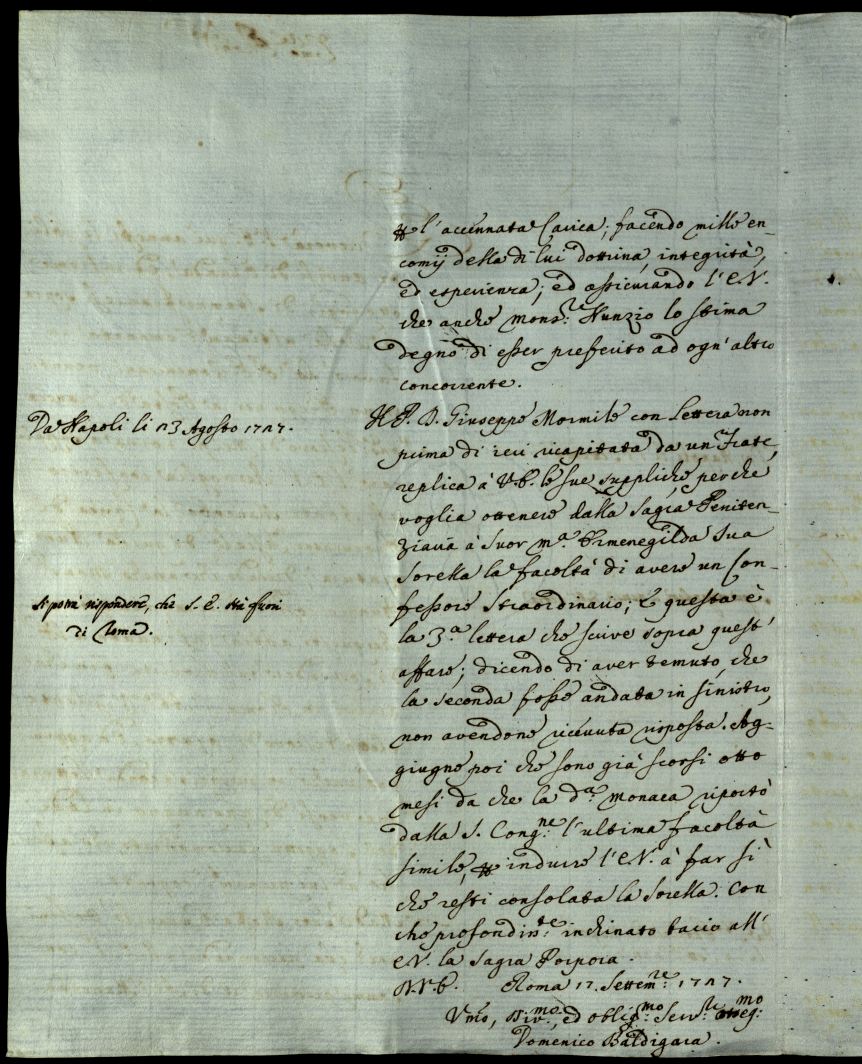 l'accennata Carica; facendo mille en-
comij della di lui dottrina, integrità,
ed esperienza; ed assicurando l'E.V.
che anche Mons.re Nunzio lo stima
degno di esser preferito ad ogn'altro
concorrente.
Da Napoli li 23 Agosto 1727.
Il P. D. Giuseppe Mormile con lettera non
prima di ieri ricapitata da un Frate,
replica à V.E. le sue suppliche, perche
voglia ottenere dalla Sagra Peniten-
ziaria à Suor M.a Ermenegilda sua
Sorella la facoltà di avere un Con-
fessore straordinario; e questa è
Si potrà rispondere, che S. E. stà fuori
di Roma.
la 3.a lettera che scrive sopra quest'
affare; dicendo di aver temuto, che
la seconda fosse andata in sinistro,
non avendone ricevuta risposta. Ag-
giugne poi che sono già scorsi otto
mesi da che la d.a monaca riportò
dalla S. Cong.ne l'ultima facoltà
simile, indurre l'E.V. à far sì
che resti consolata la Sorella. Con
che profondam.te inchinato bacio all'
E.V. la Sagra Porpora.
D.V.E. Roma 17. Settem.re 1727.
Vmo, ed oblig.mo Serv.re
Domenico Baldigara.